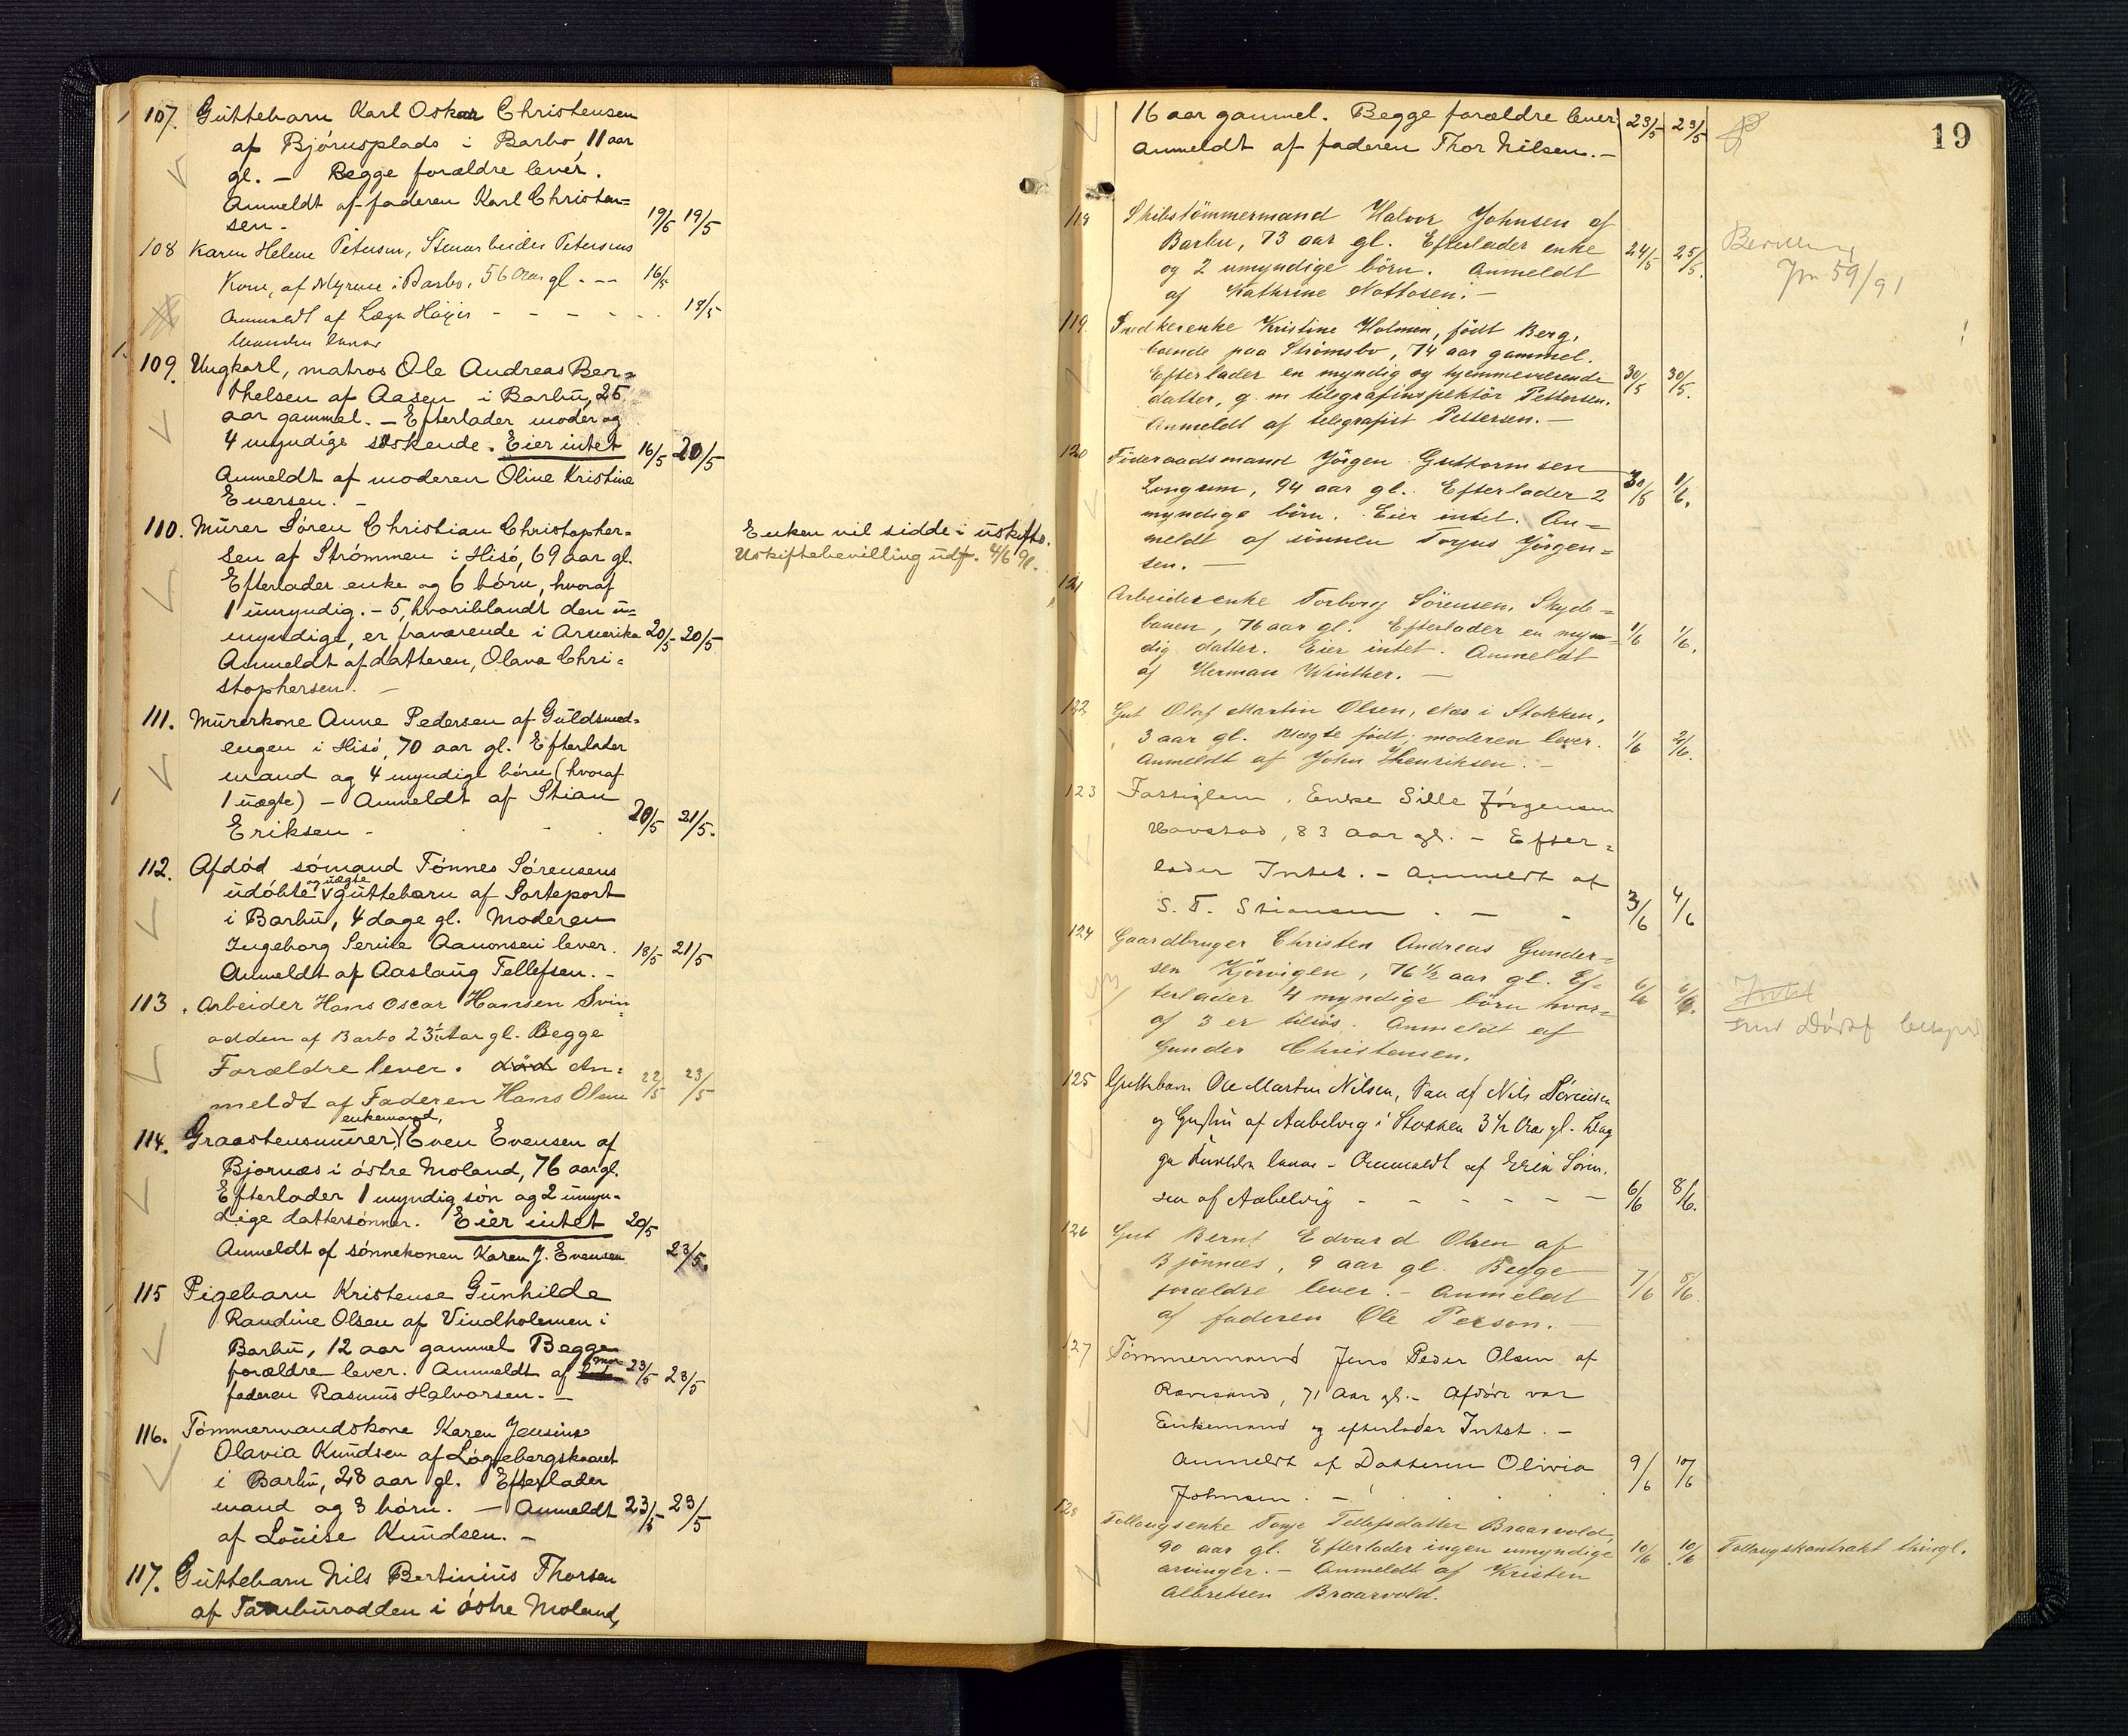 107. Guttebarn Karl Oskar Christensen
af Bjørnsplads i Barbo, 11 aar
gl. — Begge forældre lever.
Anmeldt af faderen Karl Christen=
sen. - 19/5 19/5
108 Karen Helene Petersen, Petersens
Kone, af Myrene i Barbo, 56 Aar gl. -- 16/5
Anmeldt af Læge - - - - - 18/5
Manden lever
109. Ungkarl, matros Ole Andreas Ber=
thelsen af Aasen i Barbu, 25
aar gammel. — Efterlader moder og
4 myndige søskende. Eier intet 16/5 20/5
Anmeldt af moderen Oline Kristine
Enersen. —
110. Murer Søren Christian Christopher-
sen af Strømmen i Hisø, 69 aar gl. Enken vil sidde i uskifte.
Efterlader enke og 6 børn, hvoraf Uskiftebevilling udf. 4/6 91.
1 umyndig. — 5, hvoriblandt den u=
myndige, er fraværende i Amerika 20/5 20/5
Anmeldt af datteren, Olava Chri=
stophersen. —
111. Murerkone Anne Pedersen af Guldsmed=
engen i Hisø, 70 aar gl. Efterlader
mand og 4 myndige børn (hvoraf
1 uægte) — Anmeldt af Stian
Eriksen - 20/5 21/5.
112. Afdød sømand Tønnes Sørensens
udøbte og uægte guttebarn af Sorteport
i Barbu, 4 dage gl. Moderen
Ingeborg Serine Aanonsen lever. 18/5 21/5
Anmeldt af Aaslaug Tellefsen. —
113. Arbeider Hans Oscar Hansen Svin
odden af Barbo 23 1/2 Aar gl. Begge
Forældre lever. død An=
meldt af Faderen Hans Olsen 22/5 23/5
114. Graastensmurer, enkemand, Even Evensen af
Bjornæs i østre Moland, 76 aar gl.
Efterlader 1 myndig søn og 2 umyn-
dige dattersønner. Eier intet 20/5
Anmeldt af sønnekonen Karen J. Evensen 23/5.
115 Pigebarn Kristense Gunhilde
Randine Olsen af Vindholmen i
Barbu, 12 aar gammel Begge
forældre lever. Anmeldt af mor- 23/5 23/5
faderen Rasmus Halvorsen. —
116. Tømmermandskone Karen Jensine
Olavia Knudsen af Løgebergskaaret
i Barbu, 28 aar gl. Efterlader
mand og 3 børn. — Anmeldt 23/5 23/5
af Louise Knudsen. —
117. Guttebarn Nils Bertinius Thorsen
af Tamburodden i østre Moland,
19
16 aar gammel. Begge forældre lever. 23/5 23/5
Anmeldt af faderen Thor Nilsen. —
118 Skibstømmermand Halvor Johnsen af
Barbu, 73 aar gl. Efterlader enke 24/5 25/5. Bevilling
og 2 umyndige børn. Anmeldt Jn 59/91
af Kathrine Nottosen. —
119 Snedkerenke Kristine Holmen, født Berg,
boende paa Strømsbo, 74 aar gammel.
Efterlader en myndig og hjemmeværende 30/5 30/5.
datter, g. m telegrafinspektør Pettersen.
Anmeldt af telegrafist Pettersen. —
120 Føderaadsmand Jørgen Guttormsen
Longum, 94 aar gl. Efterlader 2 30/5 1/6.
myndige børn. Eier intet. An=
meldt af sønnen Torjus Jørgen=
sen. —
121 Arbeiderenke Torborg Sørensen, Skyde=
banen, 76 aar gl. Efterlader en myn= 1/6 1/6.
dig datter. Eier intet. Anmeldt
af Herman Winther. —
122 Gut Olaf Martin Olsen, Næs i Stokken,
3 aar gl. Uægte født; moderen lever. 1/6 2/6.
Anmeldt af John Henriksen. —
123 Enke Sille Jørgensen
Havstad, 83 Aar gl. — Efter=
lader Intet. — Anmeldt af
S. T. Stiansen . — - 3/6 4/6
124 Gaardbruger Christen Andreas Gunder=
sen Kjørvigen, 76 1/2 aar gl. Ef= 6/6 6/6. Intet
terlader 4 myndige børn hvor=
af 3 er tilsjøs. Anmeldt af
Gunder Christensen.
125 Guttebarn Ole Martin Nilsen, Søn af Nils Sørensen
og Hustru af Aabelvig i Stokken 3 1/2 Aar gl. Beg
ge Forældre lever — Anmeldt af Erik Søren.
sen af Aabelvig - - - - - - 6/6 8/6.
126 Gut Bernt Edvard Olsen af
Bjønnæs, 9 aar gl. Begge
forældre lever. — Anmeldt 7/6 8/6.
af faderen Ole Person. —
127 Tømmermand Jens Peder Olsen af
Revesand, 71 Aar gl. — Afdøde var
Enkemand og efterlader Intet. —
Anmeldt af Datteren Olivia 9/6 10/6
Johnsen. —
128 Follougsenke Tonje Tellefsdatter Braarvold,
90 aar gl. Efterlader ingen umyndige 10/6 10/6 Follougskontrakt thingl.
arvinger. — Anmeldt af Kristen
Albretsen Braarvold.